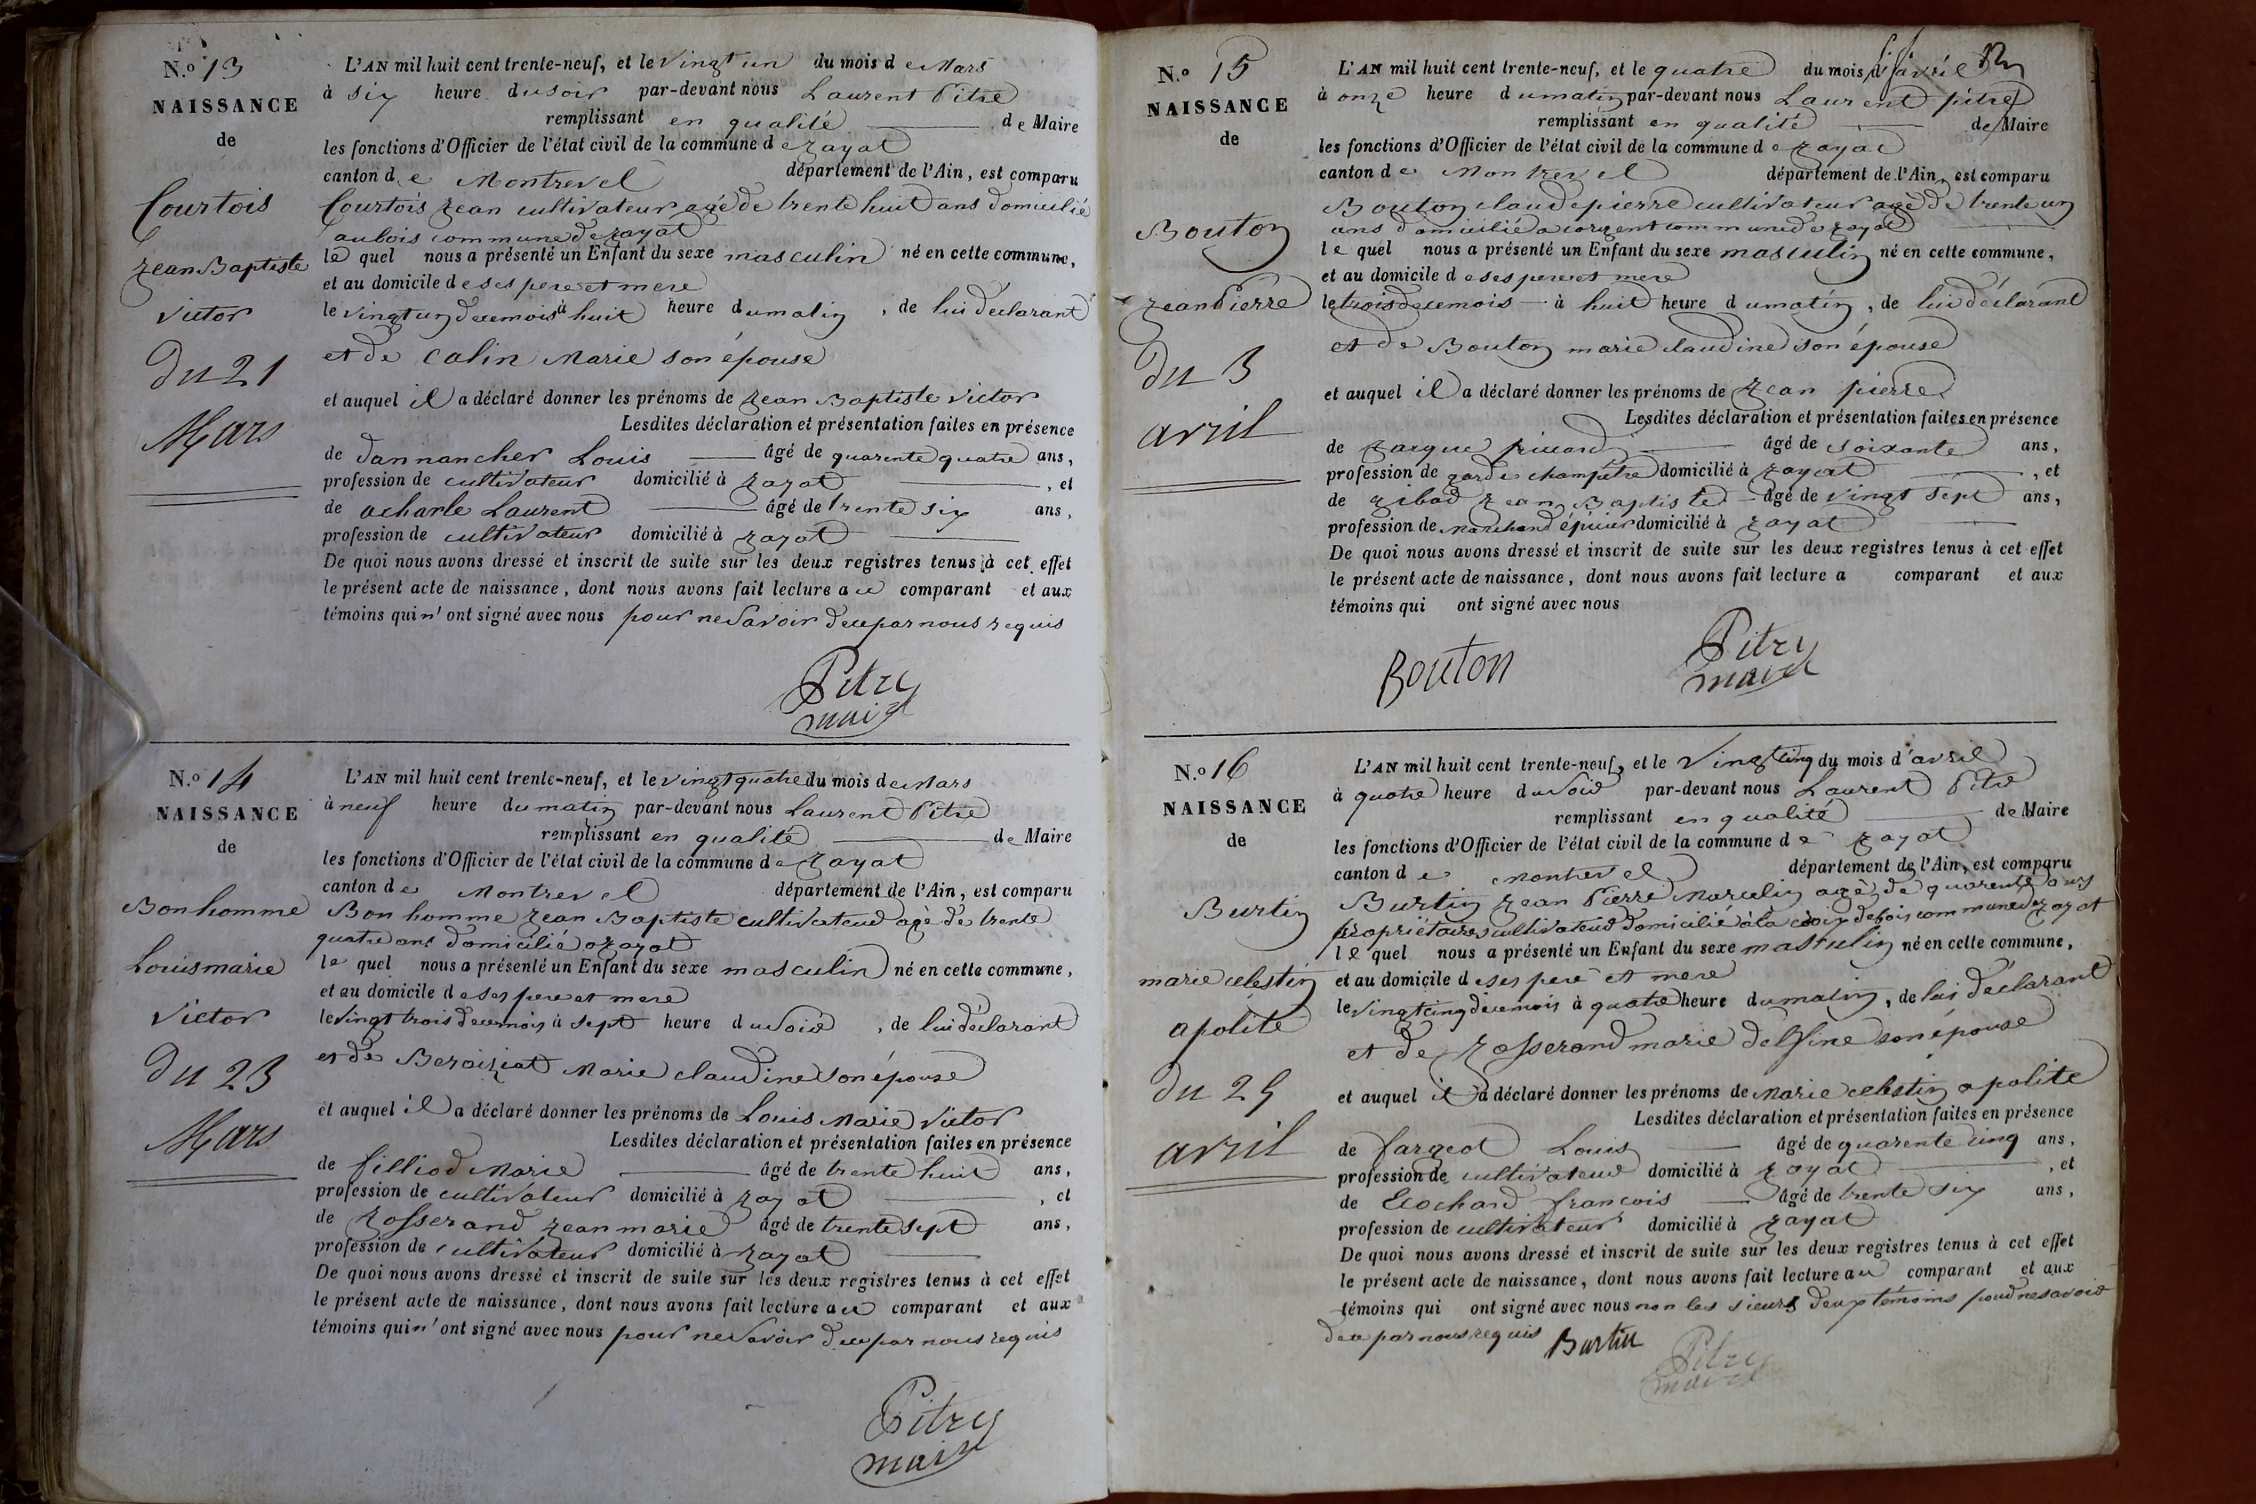 N.º 13
NAISSANCE
de
Courtois
Jean Baptiste
Victor
du 21
Mars
L'AN mil huit cent trente-neuf, et le vingt un du mois de Mars
à six heure du soir par-devant nous Laurent Pitre
remplissant en qualité de Maire
les fonctions d'Officier de l'état civil de la commune de Jayat
canton de Montrevel département de l'Ain, est comparu
Courtois Jean cultivateur agé de trente huit ans domicilié
au bois commune de Jayat
le quel nous a présenté un Enfant du sexe masculin né en cette commune,
et au domicile de ses pere et mere
le vingt un de ce mois à huit heure du matin, de lui déclarant
et de Colin Marie son épouse
et auquel il a déclaré donner les prénoms de Jean Baptiste Victor
Lesdites déclaration et présentation faites en présence
de Dannancher Louis âgé de quarente quatre ans,
profession de cultivateur domicilié à Jayat, et
de acharle Laurent âgé de trente six ans,
profession de cultivateur domicilié à Jayat
De quoi nous avons dressé et inscrit de suite sur les deux registres tenus à cet effet
le présent acte de naissance, dont nous avons fait lecture au comparant et aux
témoins qui n'ont signé avec nous pour ne savoir de ce par nous requis
Pitre
maire
N.º 14
NAISSANCE
de
Bonhomme
Louis marie
Victor
du 23
Mars
L'AN mil huit cent trente-neuf, et le vingt quatre du mois de Mars
à neuf heure du matin par-devant nous Laurent Pitre
remplissant en qualité de Maire
les fonctions d'Officier de l'état civil de la commune de Jayat
canton de Montrevel département de l'Ain, est comparu
Bonhomme Jean Baptiste cultivateur agé de trente
quatre ans domicilié a Jayat
le quel nous a présenté un Enfant du sexe masculin né en cette commune,
et au domicile de ses pere et mere
le vingt trois de ce mois à sept heure du soir, de lui déclarant
et de Beroiziat Marie claudine son épouse
et auquel il a déclaré donner les prénoms de Louis Marie Victor
Lesdites déclaration et présentation faites en présence
de filliod Marie âgé de trente huit ans,
profession de cultivateur domicilié à Jayat, et
de Josserand Jean marie âgé de trente sept ans,
profession de cultivateur domicilié à Jayat
De quoi nous avons dressé et inscrit de suite sur les deux registres tenus à cet effet
le présent acte de naissance, dont nous avons fait lecture au comparant et aux
témoins qui n'ont signé avec nous pour ne savoir de ce par nous requis
Pitre
maire
N.º 15
NAISSANCE
de
Bouton
Jean Pierre
du 3
avril
L'AN mil huit cent trente-neuf, et le quatre du mois d'avril
à onze heure du matin par-devant nous Laurent pitre
remplissant en qualité de Maire
les fonctions d'Officier de l'état civil de la commune de Jayat
canton de Montrevel département de l'Ain, est comparu
Bouton claude pierre cultivateur agé de trente un
ans domicilié a corgent commune de Jayat
le quel nous a présenté un Enfant du sexe masculin né en cette commune,
et au domicile de ses pere et mere
le trois de ce mois à huit heure du matin, de lui déclarant
et de Bouton marie claudine son épouse
et auquel il a déclaré donner les prénoms de Jean pierre
Lesdites déclaration et présentation faites en présence
de Jacque âgé de soixante ans,
profession de garde champêtre domicilié à Jayat, et
de gibod Jean Baptiste âgé de vingt sept ans,
profession de marchand épicier domicilié à Jayat
De quoi nous avons dressé et inscrit de suite sur les deux registres tenus à cet effet
le présent acte de naissance, dont nous avons fait lecture a comparant et aux
témoins qui ont signé avec nous
Bouton
Pitre
maire
N.º 16
NAISSANCE
de
Burtin
marie celestin
apolite
du 25
avril
L'AN mil huit cent trente-neuf, et le vingt cinq du mois d'avril
à quatre heure du soir par-devant nous Laurent Pitre
remplissant en qualité de Maire
les fonctions d'Officier de l'état civil de la commune de Jayat
canton de Montrevel département de l'Ain, est comparu
Burtin Jean Pierre Marcelin agé de quarente ans
propriétaire cultivateur domicilié à la croix de fois commune de Jayat
le quel nous a présenté un Enfant du sexe masculin né en cette commune,
et au domicile de ses pere et mere
le vingt cinq de ce mois à quatre heure du matin, de lui déclarant
et de Josserand marie delfine son épouse
et auquel il a déclaré donner les prénoms de Marie celestin apolite
Lesdites déclaration et présentation faites en présence
de fargeot Louis âgé de quarente cinq ans,
profession de cultivateur domicilié à Jayat, et
de Ecochard francois âgé de trente six ans,
profession de cultivateur domicilié à Jayat
De quoi nous avons dressé et inscrit de suite sur les deux registres tenus à cet effet
le présent acte de naissance, dont nous avons fait lecture au comparant et aux
témoins qui ont signé avec nous non les sieurs deux témoins pour ne savoir
de ce par nous requis Burtin
Pitre
maire